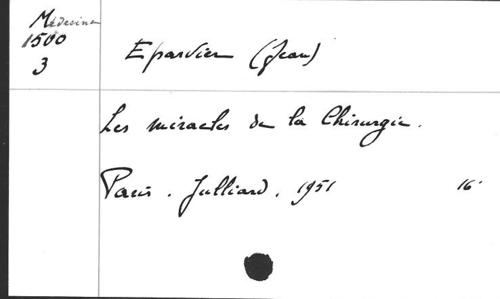 Médecine
1500
3
Eparvier (Jean)
Les miracles de la Chirurgie.
Paris. Julliard. 1951 16°